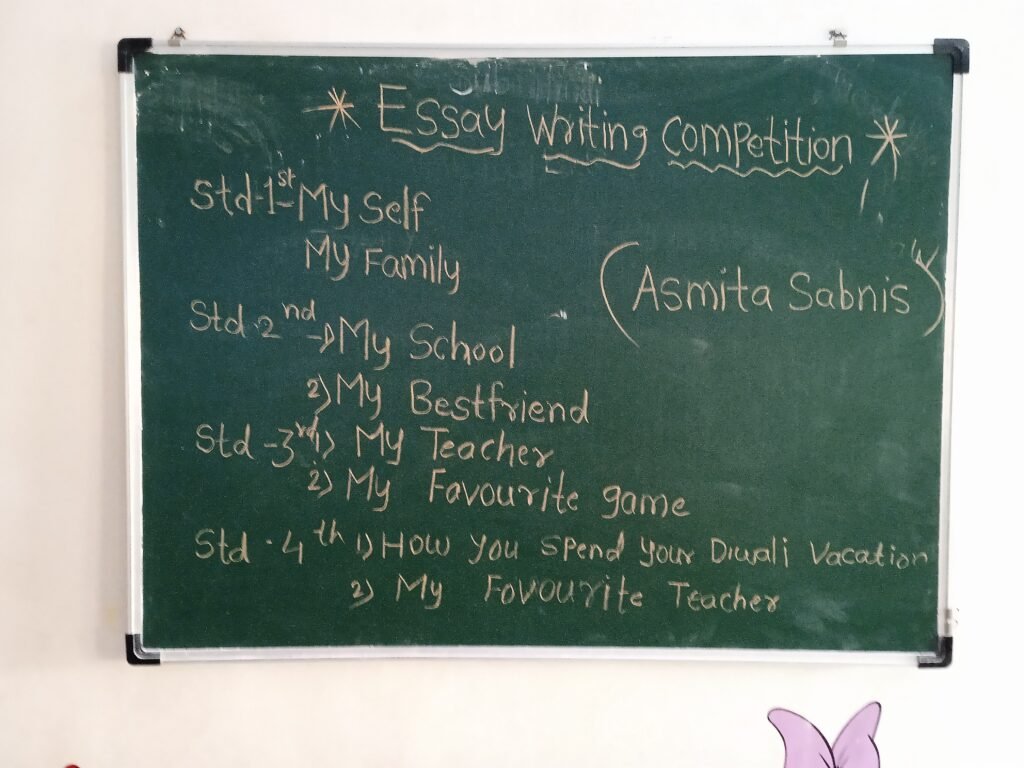 * Essay Writing Competition *
Std-1st My Self
My Family
(Asmita Sabnis)
Std-2nd 1) My School
2) My Bestfriend
Std-3rd 1) My Teacher
2) My Favourite game
Std-4th 1) How you spend your Diwali Vacation
2) My Fovourite Teacher